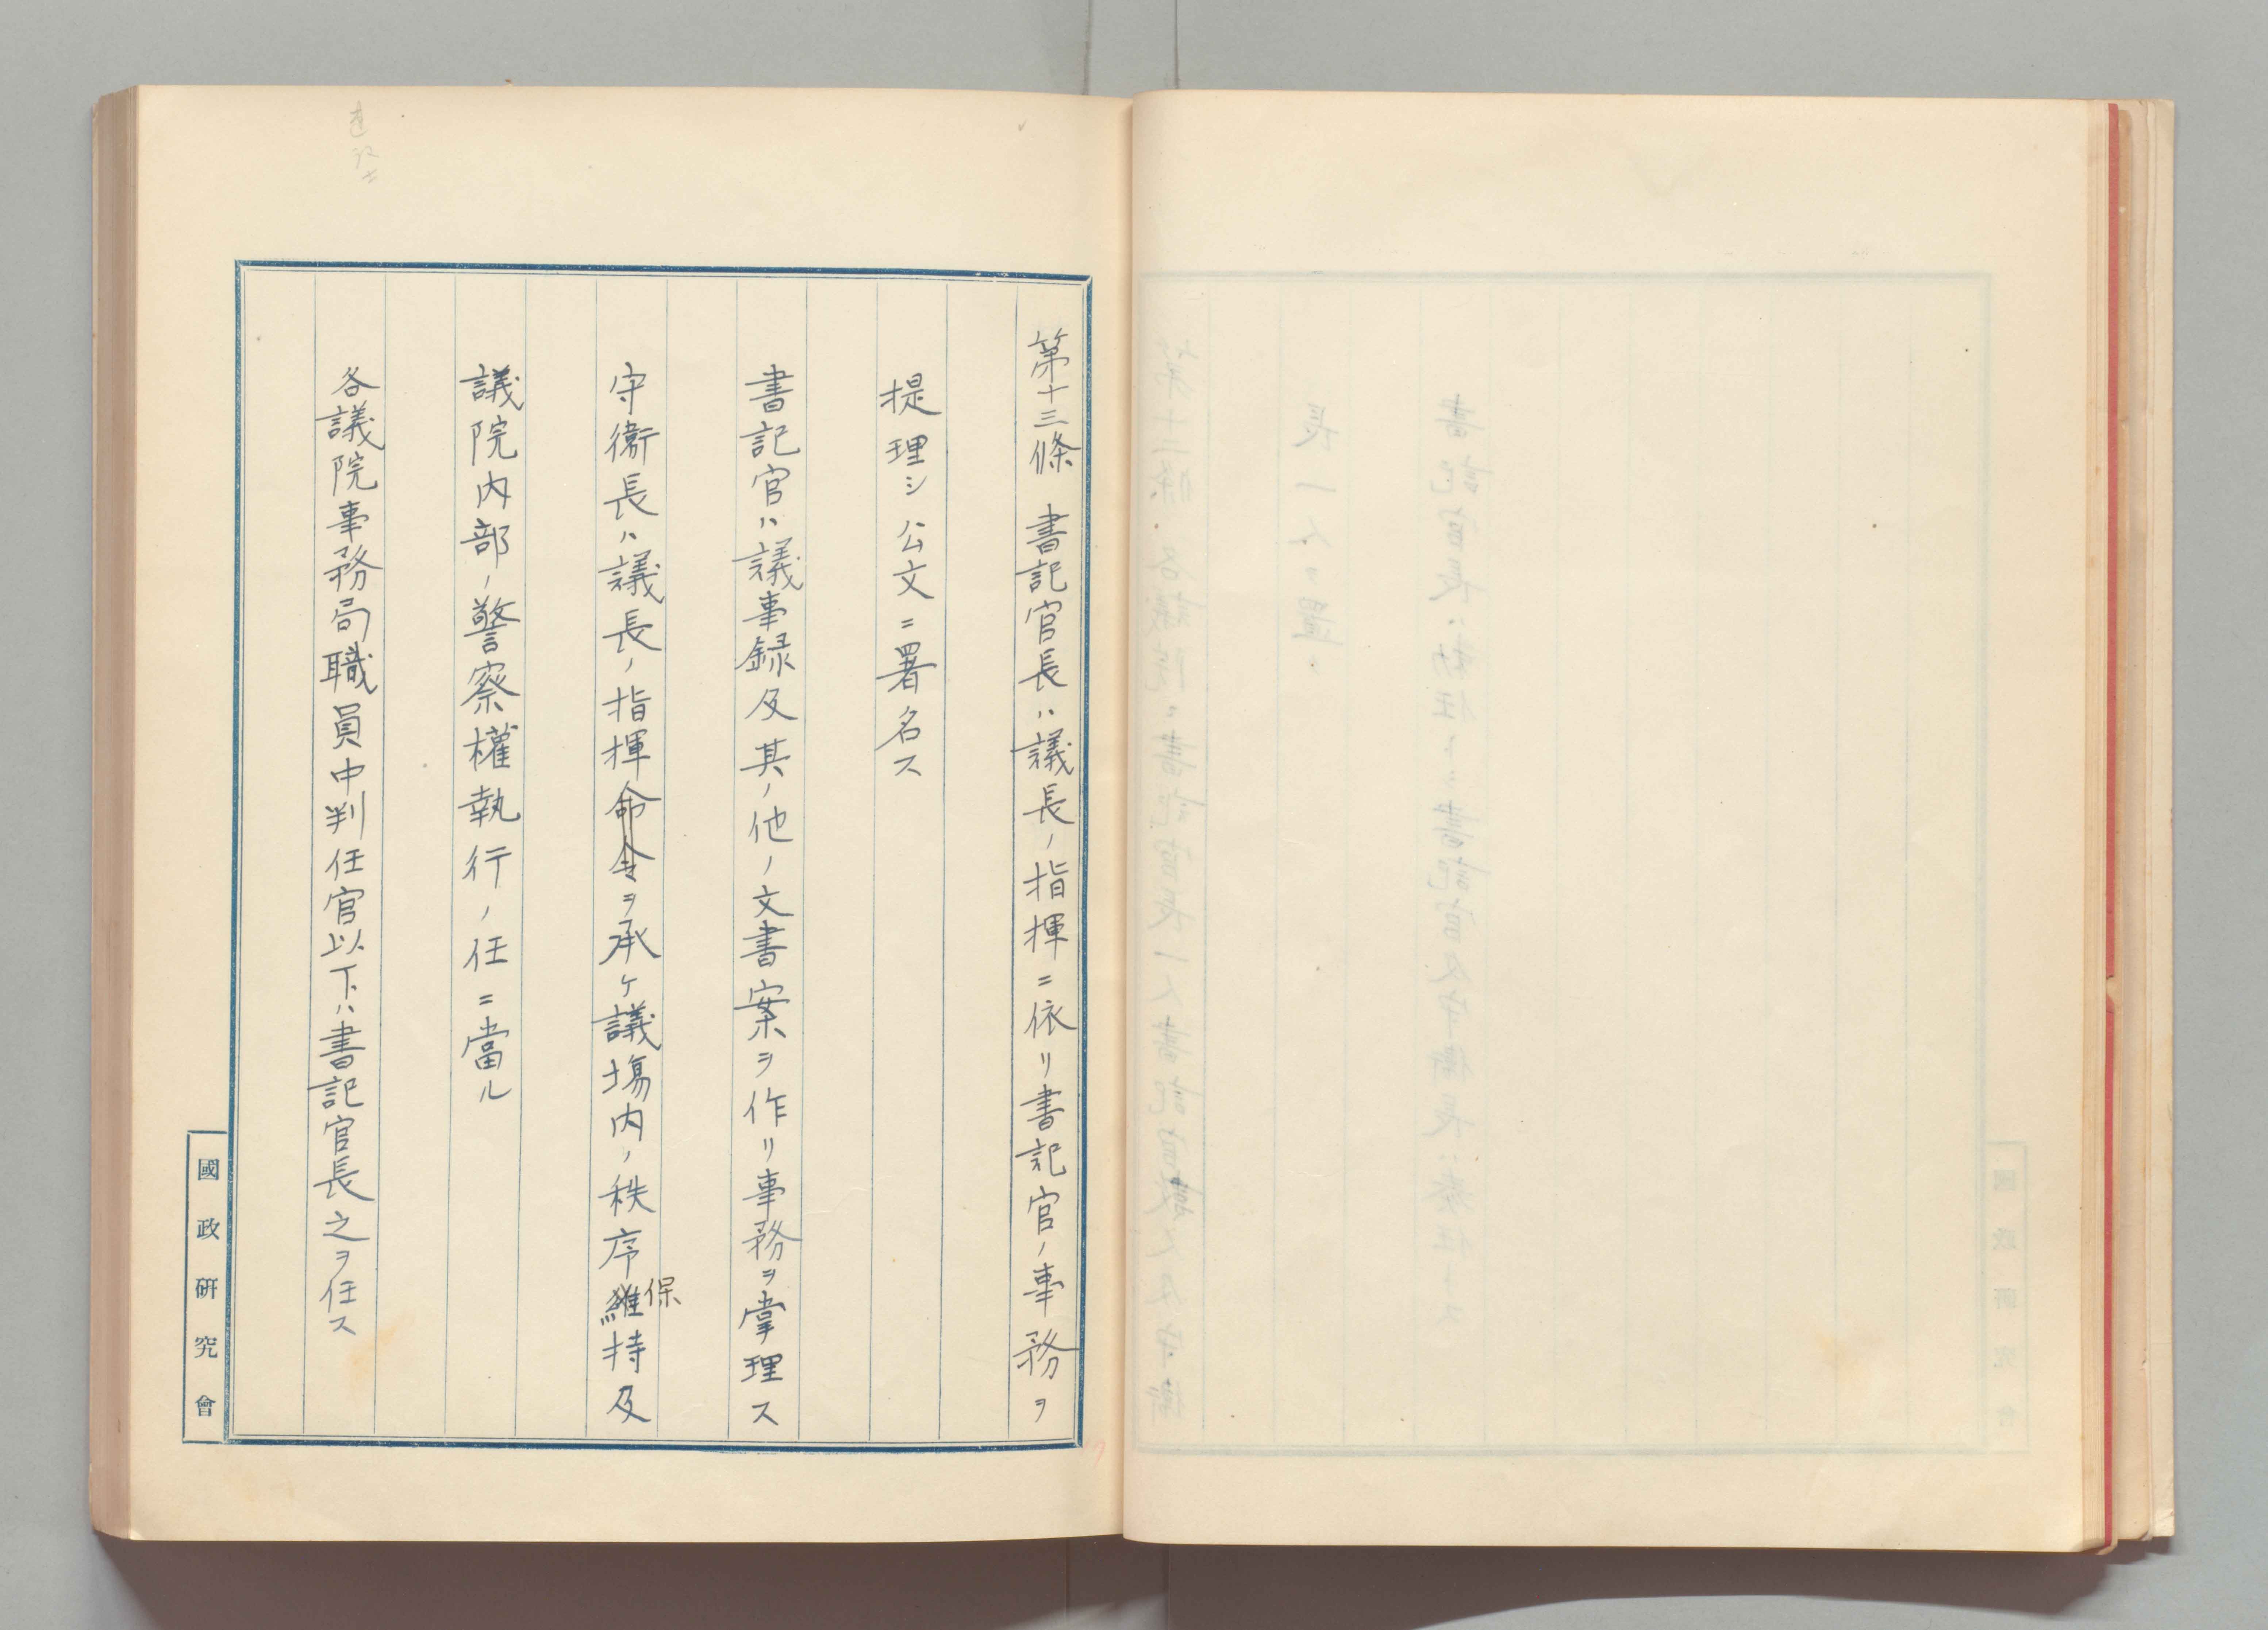 第十三條 書記官長ハ議長ノ指揮ニ依リ書記官ノ事務ヲ
提理シ公文ニ署名ス
書記官ハ議事録及其ノ他ノ文書案ヲ作リ事務ヲ掌理ス
守衛長ハ議長ノ指揮命令ヲ承ケ議場内ノ秩序維持及
保
議院内部ノ警察權執行ノ任ニ當ル
各議院事務局職員中判任官以下ハ書記官長之ヲ任ス
國政研究會